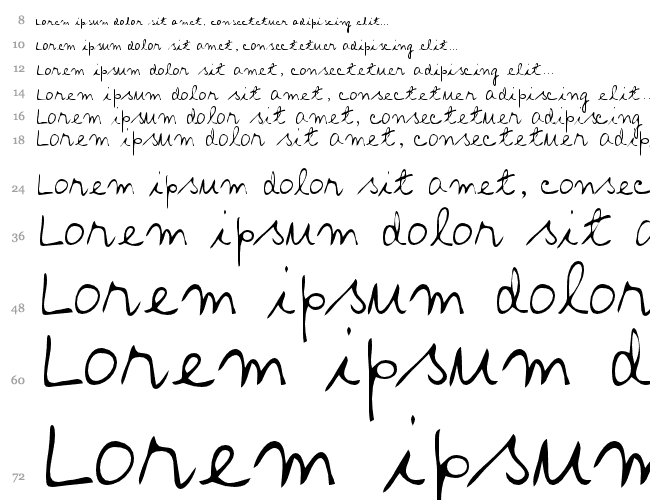 8 Lorem ipsum dolor sit amet, consectetuer adipiscing elit...
10 Lorem ipsum dolor sit amet, consectetuer adipiscing elit...
12 Lorem ipsum dolor sit amet, consectetuer adipiscing elit...
14 Lorem ipsum dolor sit amet, consectetuer adipiscing elit..
16 Lorem ipsum dolor sit amet, consectetuer adipiscing
18 Lorem ipsum dolor sit amet, consectetuer adip
24 Lorem ipsum dolor sit amet, consec
36 Lorem ipsum dolor sit a
48 Lorem ipsum dolor
60 Lorem ipsum d
72 Lorem ipsum